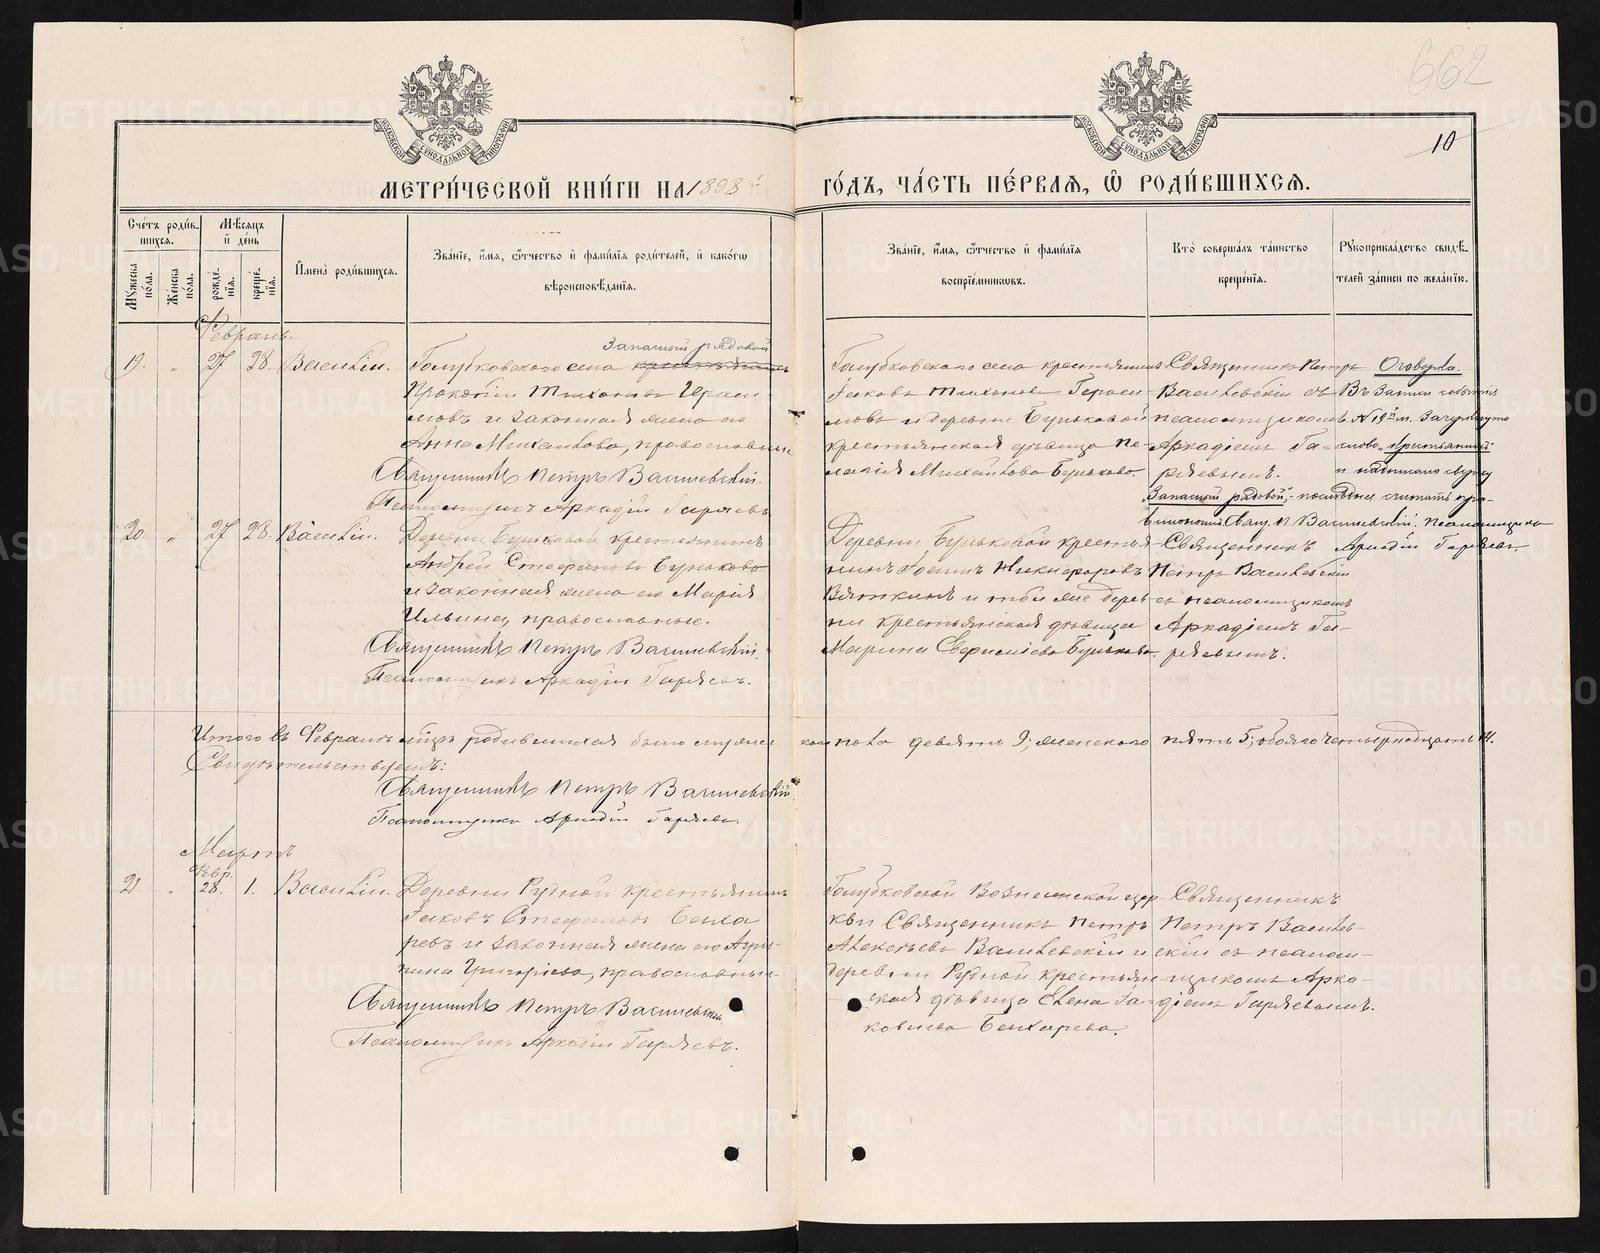 662
10
МЕТРИ́ЧЕСКОЙ КНИ́ГИ НА 1898 й ГО́ДЪ, ЧА́СТЬ ПЕ́РВАЯ, Ѡ РОДИ́ВШИХСЯ.
Сче́тъ роди́вшихся.
Му́жеска по́ла.
Же́нска по́ла.
Мѣ́сяцъ и де́нь
рожде́нія.
креще́нія.
И́мена роди́вшихся.
Зва́ніе, и́мя, о́тчество и фами́лія роди́телей, и како́гѡ вѣроисповѣ́данія.
Зва́ніе, и́мя, о́тчество и фами́лія воспріе́мниковъ.
Кто̀ соверша́лъ та́инство креще́нія.
Рукоприкла́дство свидѣ́телей за́писи по жела́нію.
Февраль.
19. " 27 28. Василій.
Запасный рядовой
Голубковскаго села крестьянинъ
Прокопій Тихоновъ Гераси-
мовъ и законная жена его
Анна Михайлова, православные
Священникъ Петръ Василевскій.
Псаломщикъ Аркадій Гаряевъ.
Голубковскаго села крестьянинъ
Іаковъ Тихоновъ Гераси-
мовъ и деревни Бунъковой
крестьянская дѣвица Пе-
лагія Михайлова Бунькова
Священникъ Петръ
Василевскій съ
псаломщикомъ
Аркадіемъ Га-
ряевымъ.
Оговорка.
Въ записи событія
№ 19й м. зачеркнуто
слово „крестьянинъ"
и написано сверху
„Запасный рядовой", - послѣднее считать пра-
вильнымъ. Свящ. П. Василевскій. Псаломщикъ
Аркадій Гаряевъ.
20. " 27 28. Василій.
Деревни Буньковой крестьянинъ
Андрей Стефановъ Буньковъ
и законная жена его Марія
Ильина, православные.
Священникъ Петръ Василевскій.
Псаломщикъ Аркадій Гаряевъ.
Деревни Буньковой крестья-
нинъ Іосифъ Никифоровъ
Вяткинъ и той же дерев-
ни крестьянская дѣвица
Марина Бунькова
Священникъ
Петръ Василевскій
съ псаломщикомъ
Аркадіемъ Га-
ряевымъ.
Итого въ Февралѣ мѣсяцѣ родившихся было мужескаго пола девять 9; женского пять 5; обоего четырнадцать 14.
Свидѣтельствуемъ:
Священникъ Петръ Василевскій
Псаломщикъ Аркадій Гаряевъ.
Мартъ
Февр.
21 " 28. 1. Василій.
Деревни Рудной крестьянинъ
Іаковъ Стефановъ Боха-
ревъ и законная жена его Агри-
пина Григорьева, православные
Священникъ Петръ Василевскій.
Псаломщикъ Аркадій Гаряевъ.
Голубковской Вознесенской цер-
кви Священникъ Петръ
Алексѣевъ Василевскій и
деревни Рудной крестьян-
ская дѣвица Елена Іа-
ковлева
Священникъ
Петръ Василев-
скій съ псалом-
щикомъ Арка-
діемъ Гаряевымъ.